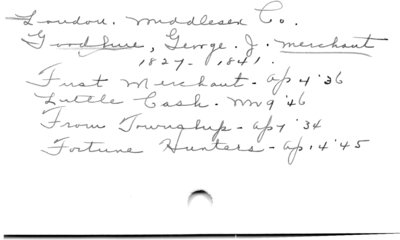 London. Middlesex Co.
Goodhue, George. J. merchant
1827 - 1841.
First Merchant - Ap 4 '36
Little Cash - My 9 '46
From Township - Ap 7 '34
Fortune Hunters - Ap. 14 '45